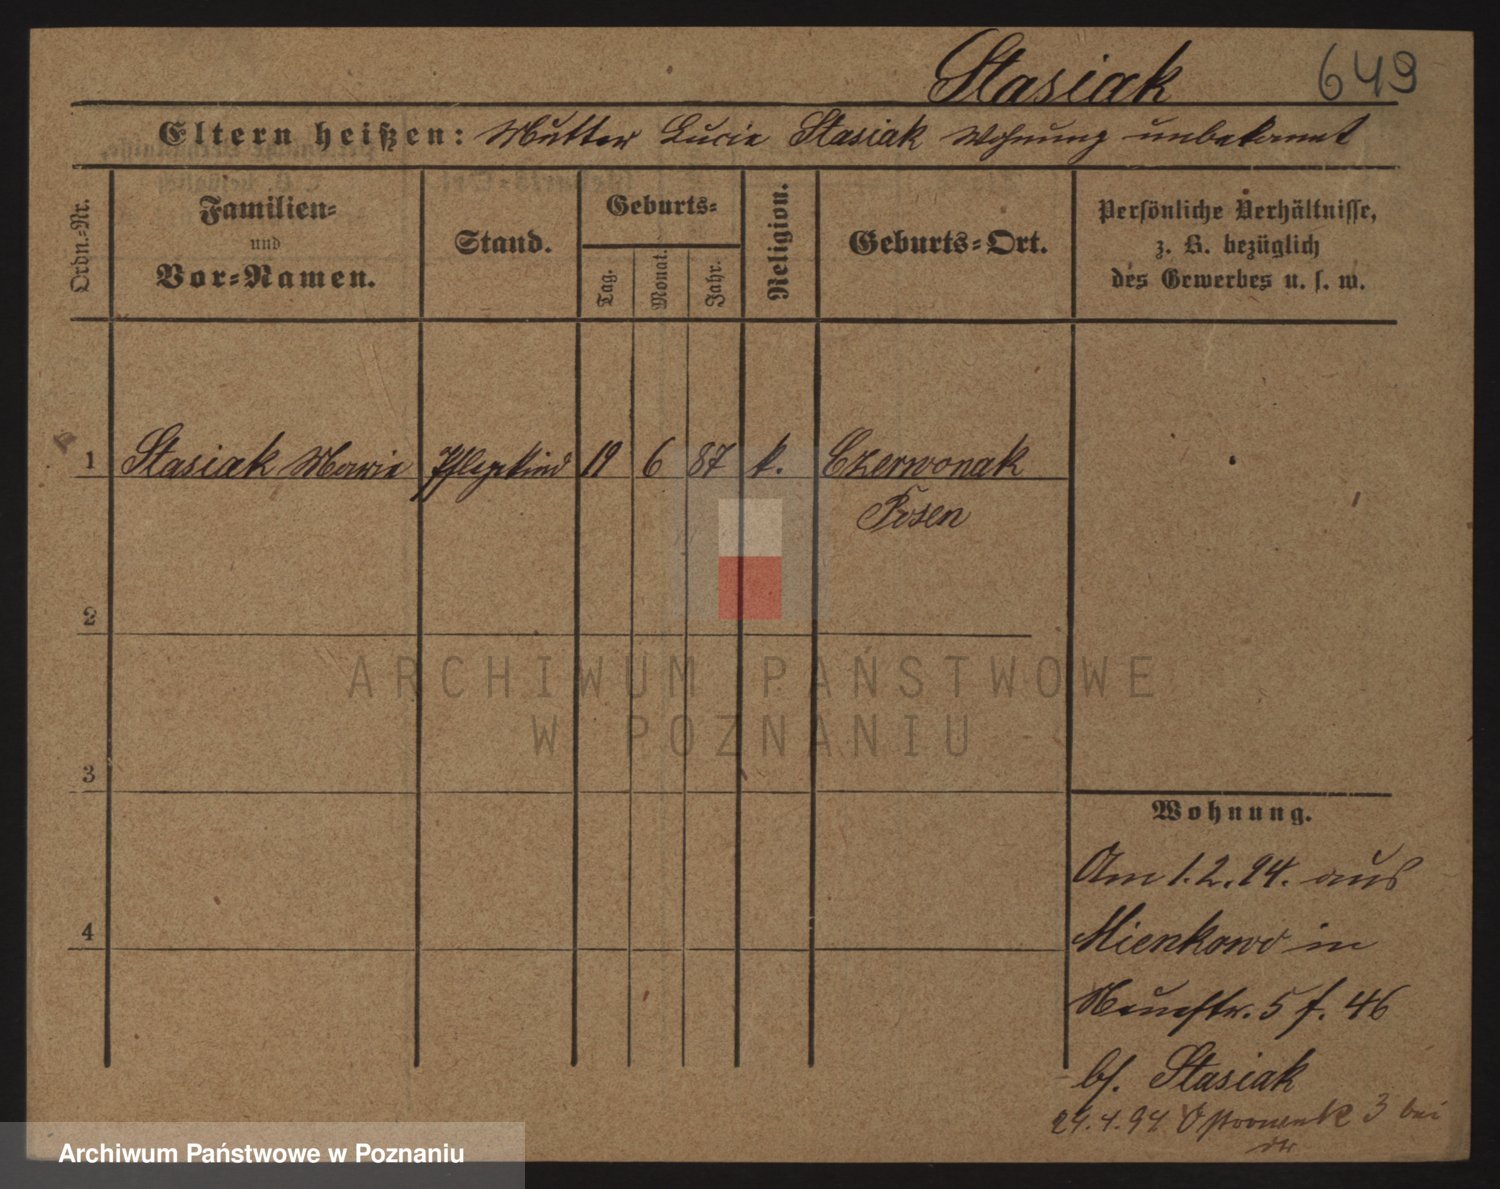 Stasiak 649
Eltern heißen: Mutter Lucie Stasiak Wohnung unbekannt
Ordn.-Nr.
Familien-
und
Vor-Namen.
Stand.
Geburts-
Tag.
Monat.
Jahr.
Religion.
Geburts-Ort.
Persönliche Verhältnisse,
z. B. bezüglich
des Gewerbes u. s. w.
1 Stasiak Marie Pflegekind 19 6 87 k. Czerwonak
Posen
2
3
4
Wohnung.
Am 1.2.94. aus
Mienkowo in
Neuestr. 5 f. 46
bf. Stasiak
29.4.94 3 bei
ARCHIWUM PAŃSTWOWE
W POZNANIU
Archiwum Państwowe w Poznaniu